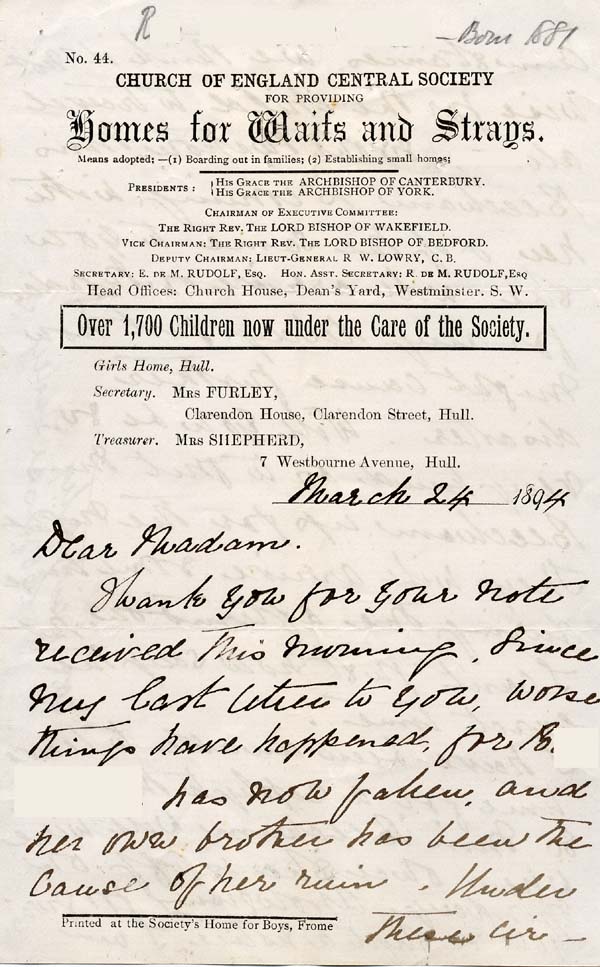 R
- Born 1881
No. 44.
CHURCH OF ENGLAND CENTRAL SOCIETY
FOR PROVIDING
Homes for Waifs and Strays.
Means adopted; —(1) Boarding out in families; (2) Establishing small homes;
PRESIDENTS : HIS GRACE THE ARCHBISHOP OF CANTERBURY.
HIS GRACE THE ARCHBISHOP OF YORK.
CHAIRMAN OF EXECUTIVE COMMITTEE:
THE RIGHT REV. THE LORD BISHOP OF WAKEFIELD.
VICE CHAIRMAN: THE RIGHT REV. THE LORD BISHOP OF BEDFORD.
DEPUTY CHAIRMAN: LIEUT-GENERAL R W. LOWRY, C. B.
SECRETARY: E. DE M. RUDOLF, ESQ. HON. ASST. SECRETARY: R. DE M. RUDOLF, ESQ
Head Offices: Church House, Dean's Yard, Westminster. S. W.
Over 1,700 Children now under the Care of the Society.
Girls Home, Hull.
Secretary. MRS FURLEY,
Clarendon House, Clarendon Street, Hull.
Treasurer. MRS SHEPHERD,
7 Westbourne Avenue, Hull.
March 24 1894
Dear Madam.
Thank you for your note
received this morning. Since
my last letter to you, worse
things have happened, for B.
has now fallen, and
her own brother has been the
cause of her ruin. Under
these cir-
Printed at the Society's Home for Boys, Frome